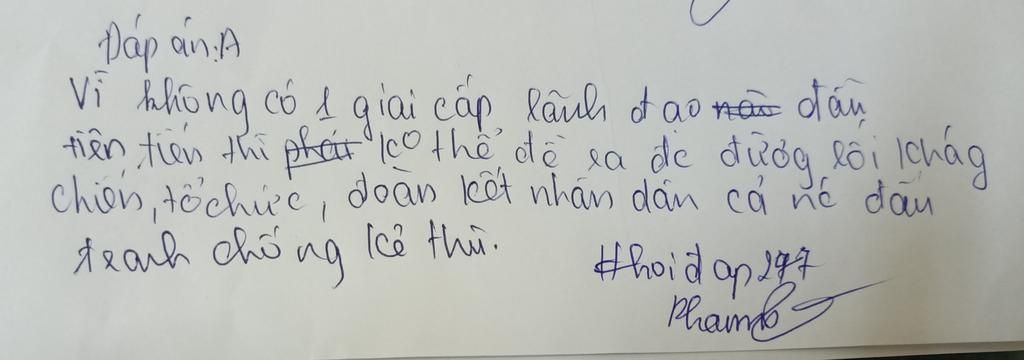 Đáp án: A
Vì không có 1 giai cấp lãnh đạo nào đấu
tiên tiến thì phát ko thể đề ra đc đườg lối khág
chiến, tổ chức, đoàn kết nhân dân cả nc đấu
tranh chống kẻ thù.
#hoidap247